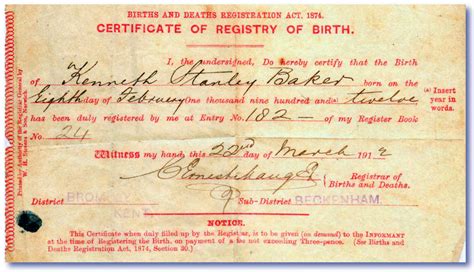 BIRTHS AND DEATHS REGISTRATION ACT, 1874.
CERTIFICATE OF REGISTRY OF BIRTH.
I, the undersigned, Do hereby certify that the Birth
of Kenneth Stanley Baker born on the
Eighth day of February One thousand nine hundred and twelve
(a) Insert year in words.
has been duly registered by me at Entry No. 182 of my Register Book
No. 24
Witness my hand this 22nd day of March 1912
Registrar of
Births and Deaths.
District KENT Sub-District BECKENHAM.
NOTICE.
This Certificate when duly filled up by the Registrar, is to be given (on demand) to the INFORMANT
at the time of Registering the Birth, on payment of a fee not exceeding Three-pence. (See Births and
Deaths Registration Act, 1874, Section 30.)
Printed by Authority of the Registrar General by